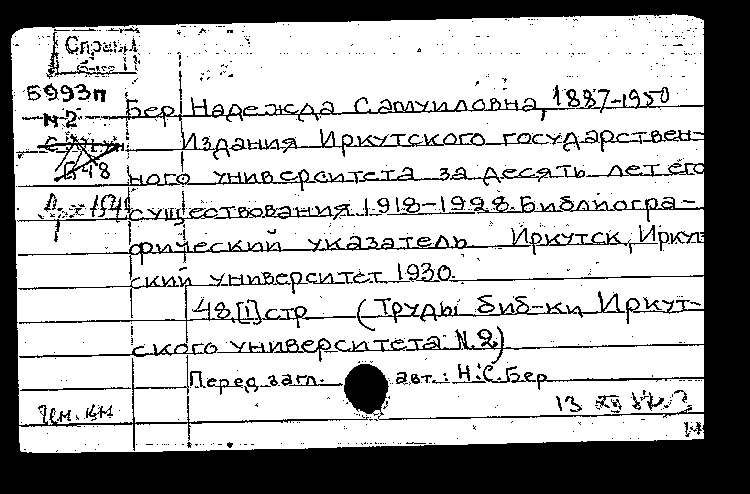 Справ.
б-ка
Б993п
N2
Б48
Бер, Надежда Самуиловна, 1887-1950
Издания Иркутского государствен-
ного университета за десять лет его
существования 1918-1928. Библиогра-
фический указатель Иркутск, Иркут-
ский университет 1930.
48,[1] стр (Труды биб-ки Иркут-
ского университета N.2)
Перед загл. авт.: Н.С.Бер
Чит. кн
13 XII